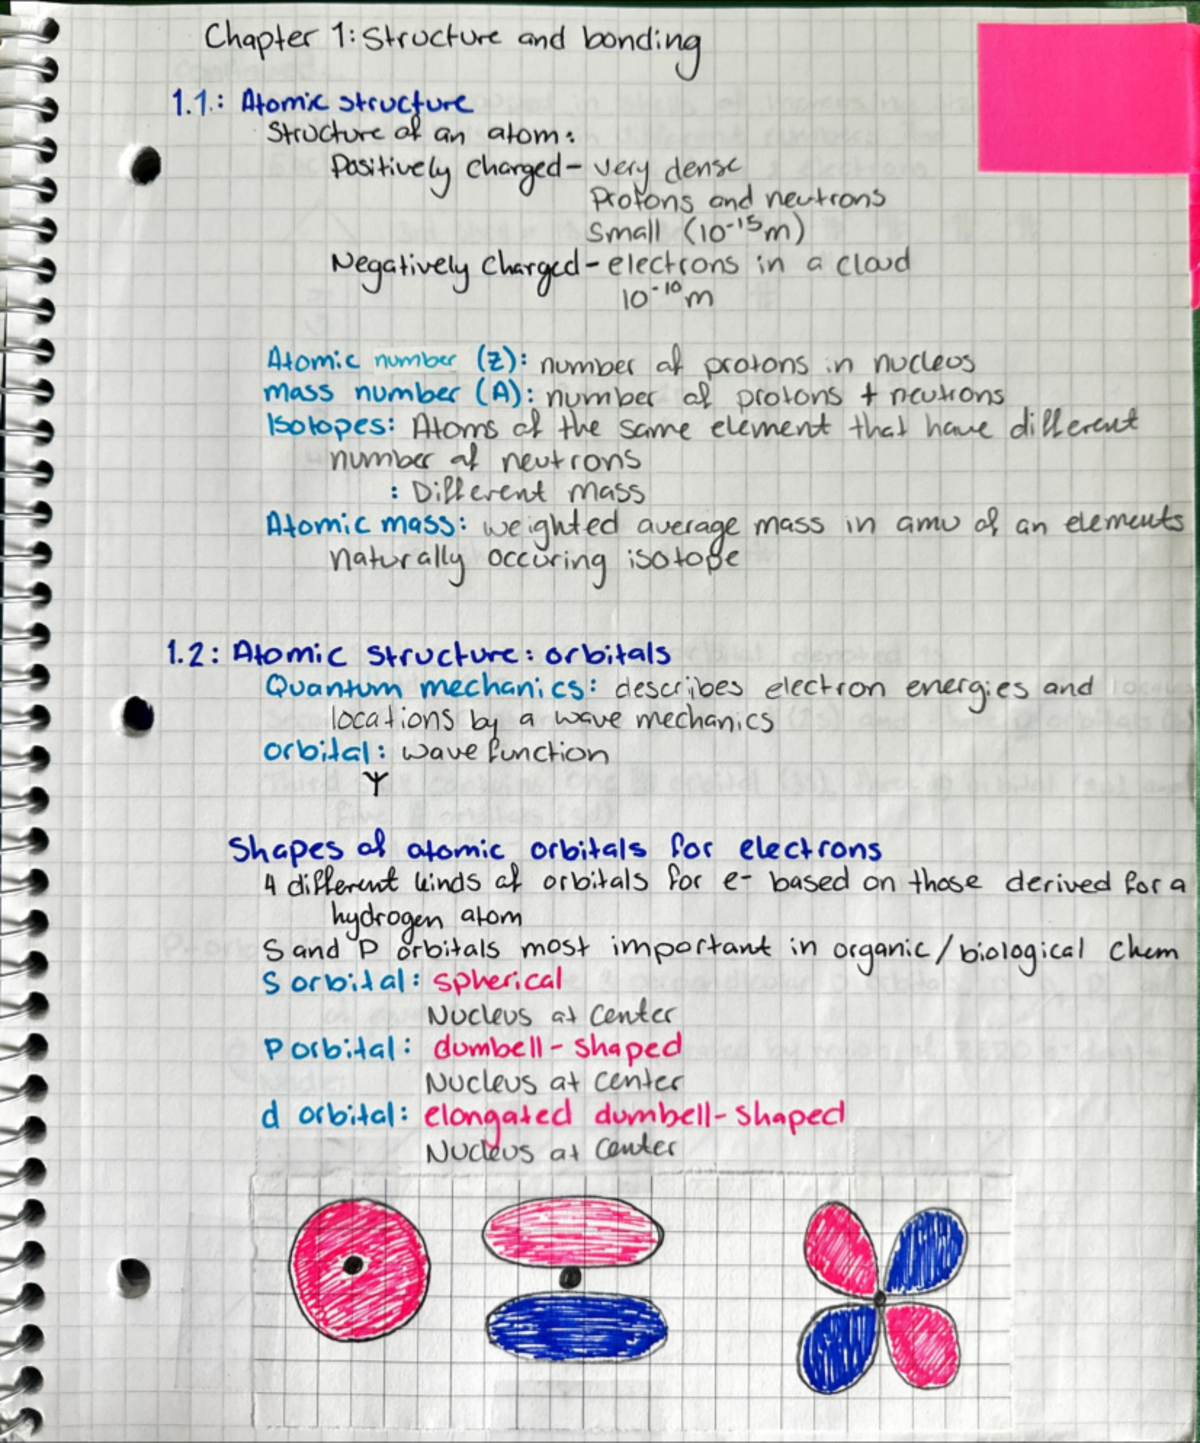 Chapter 1: Structure and bonding
1.1.: Atomic structure
Structure of an atom:
Positively charged - very dense
Protons and neutrons
Small (10⁻¹⁵m)
Negatively charged - electrons in a cloud
10⁻¹⁰m
Atomic number (Z): number of protons in nucleus
mass number (A): number of protons + neutrons
Isotopes: Atoms of the same element that have different
number of neutrons
: Different mass
Atomic mass: weighted average mass in amu of an elements
naturally occuring isotope
1.2: Atomic structure: orbitals
Quantum mechanics: describes electron energies and
locations by a wave mechanics
orbital: wave function
Ψ
Shapes of atomic orbitals for electrons
4 different kinds of orbitals for e- based on those derived for a
hydrogen atom
S and P orbitals most important in organic/biological chem
S orbital: spherical
Nucleus at center
P orbital: dumbell-shaped
Nucleus at center
d orbital: elongated dumbell-shaped
Nucleus at center